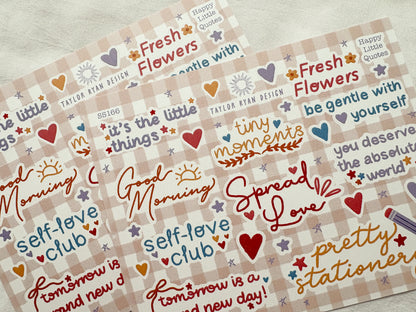 Fresh
Flowers
Happy
Little
Quotes
be gentle with
TAYLOR RYAN DESIGN
it's the little
things
Good
Morning
self-love
club
tomorrow is a
brand new day!
Fresh
Flowers
Happy
Little
Quotes
TAYLOR RYAN DESIGN
S5166
it's the little
things
tiny
moments
be gentle with
yourself
you deserve
the absolute
world
Good
Morning
Spread
Love
self-love
club
pretty
stationery
tomorrow is a
brand new day!